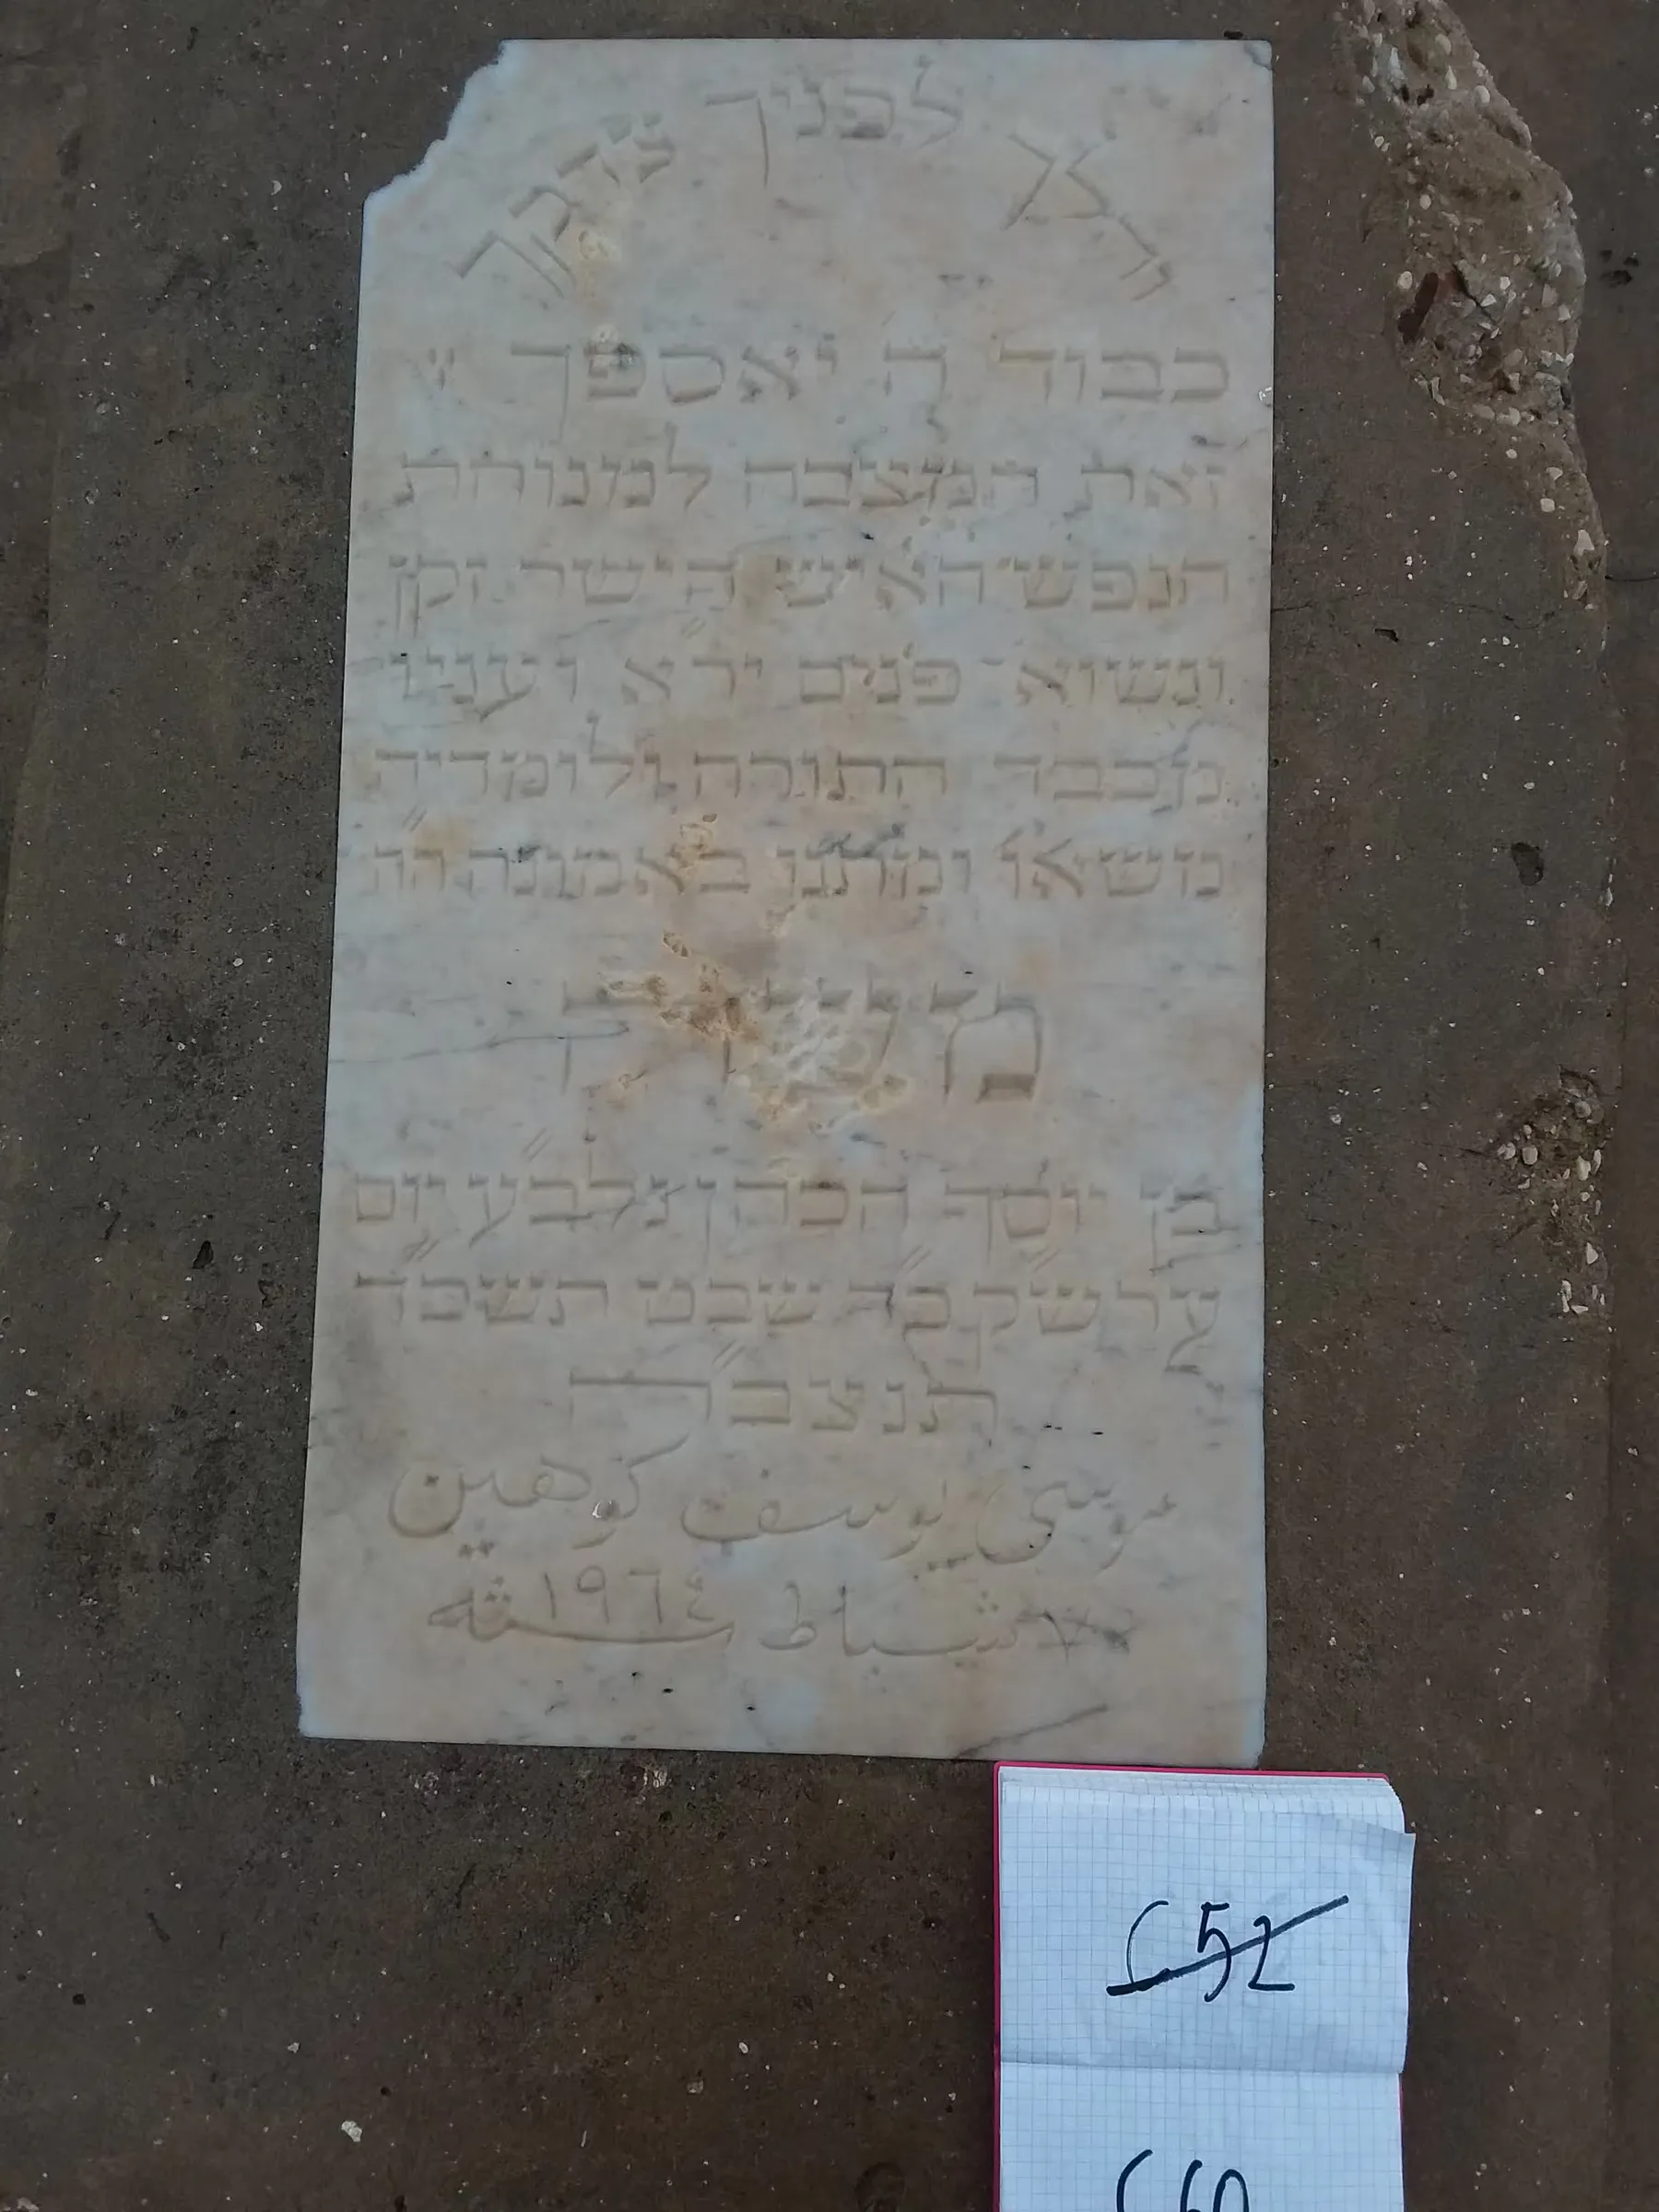 לפניך צדקך
כבוד ה יאספך
זאת המצבה למנוחת
הנפש האיש הישר זקן
ונשוא פנים ירא ועניו
מכבד התורה ולומדיה
משאו ומתנו באמונה ה״ה
בן יוסף הכהן נלב״ע יום
ער״ שק כ״ד שבט תשכ״ד
תנצב״ה
موسى يوسف كوهين
شباط سنة ١٩٦٤
C 52
C 60